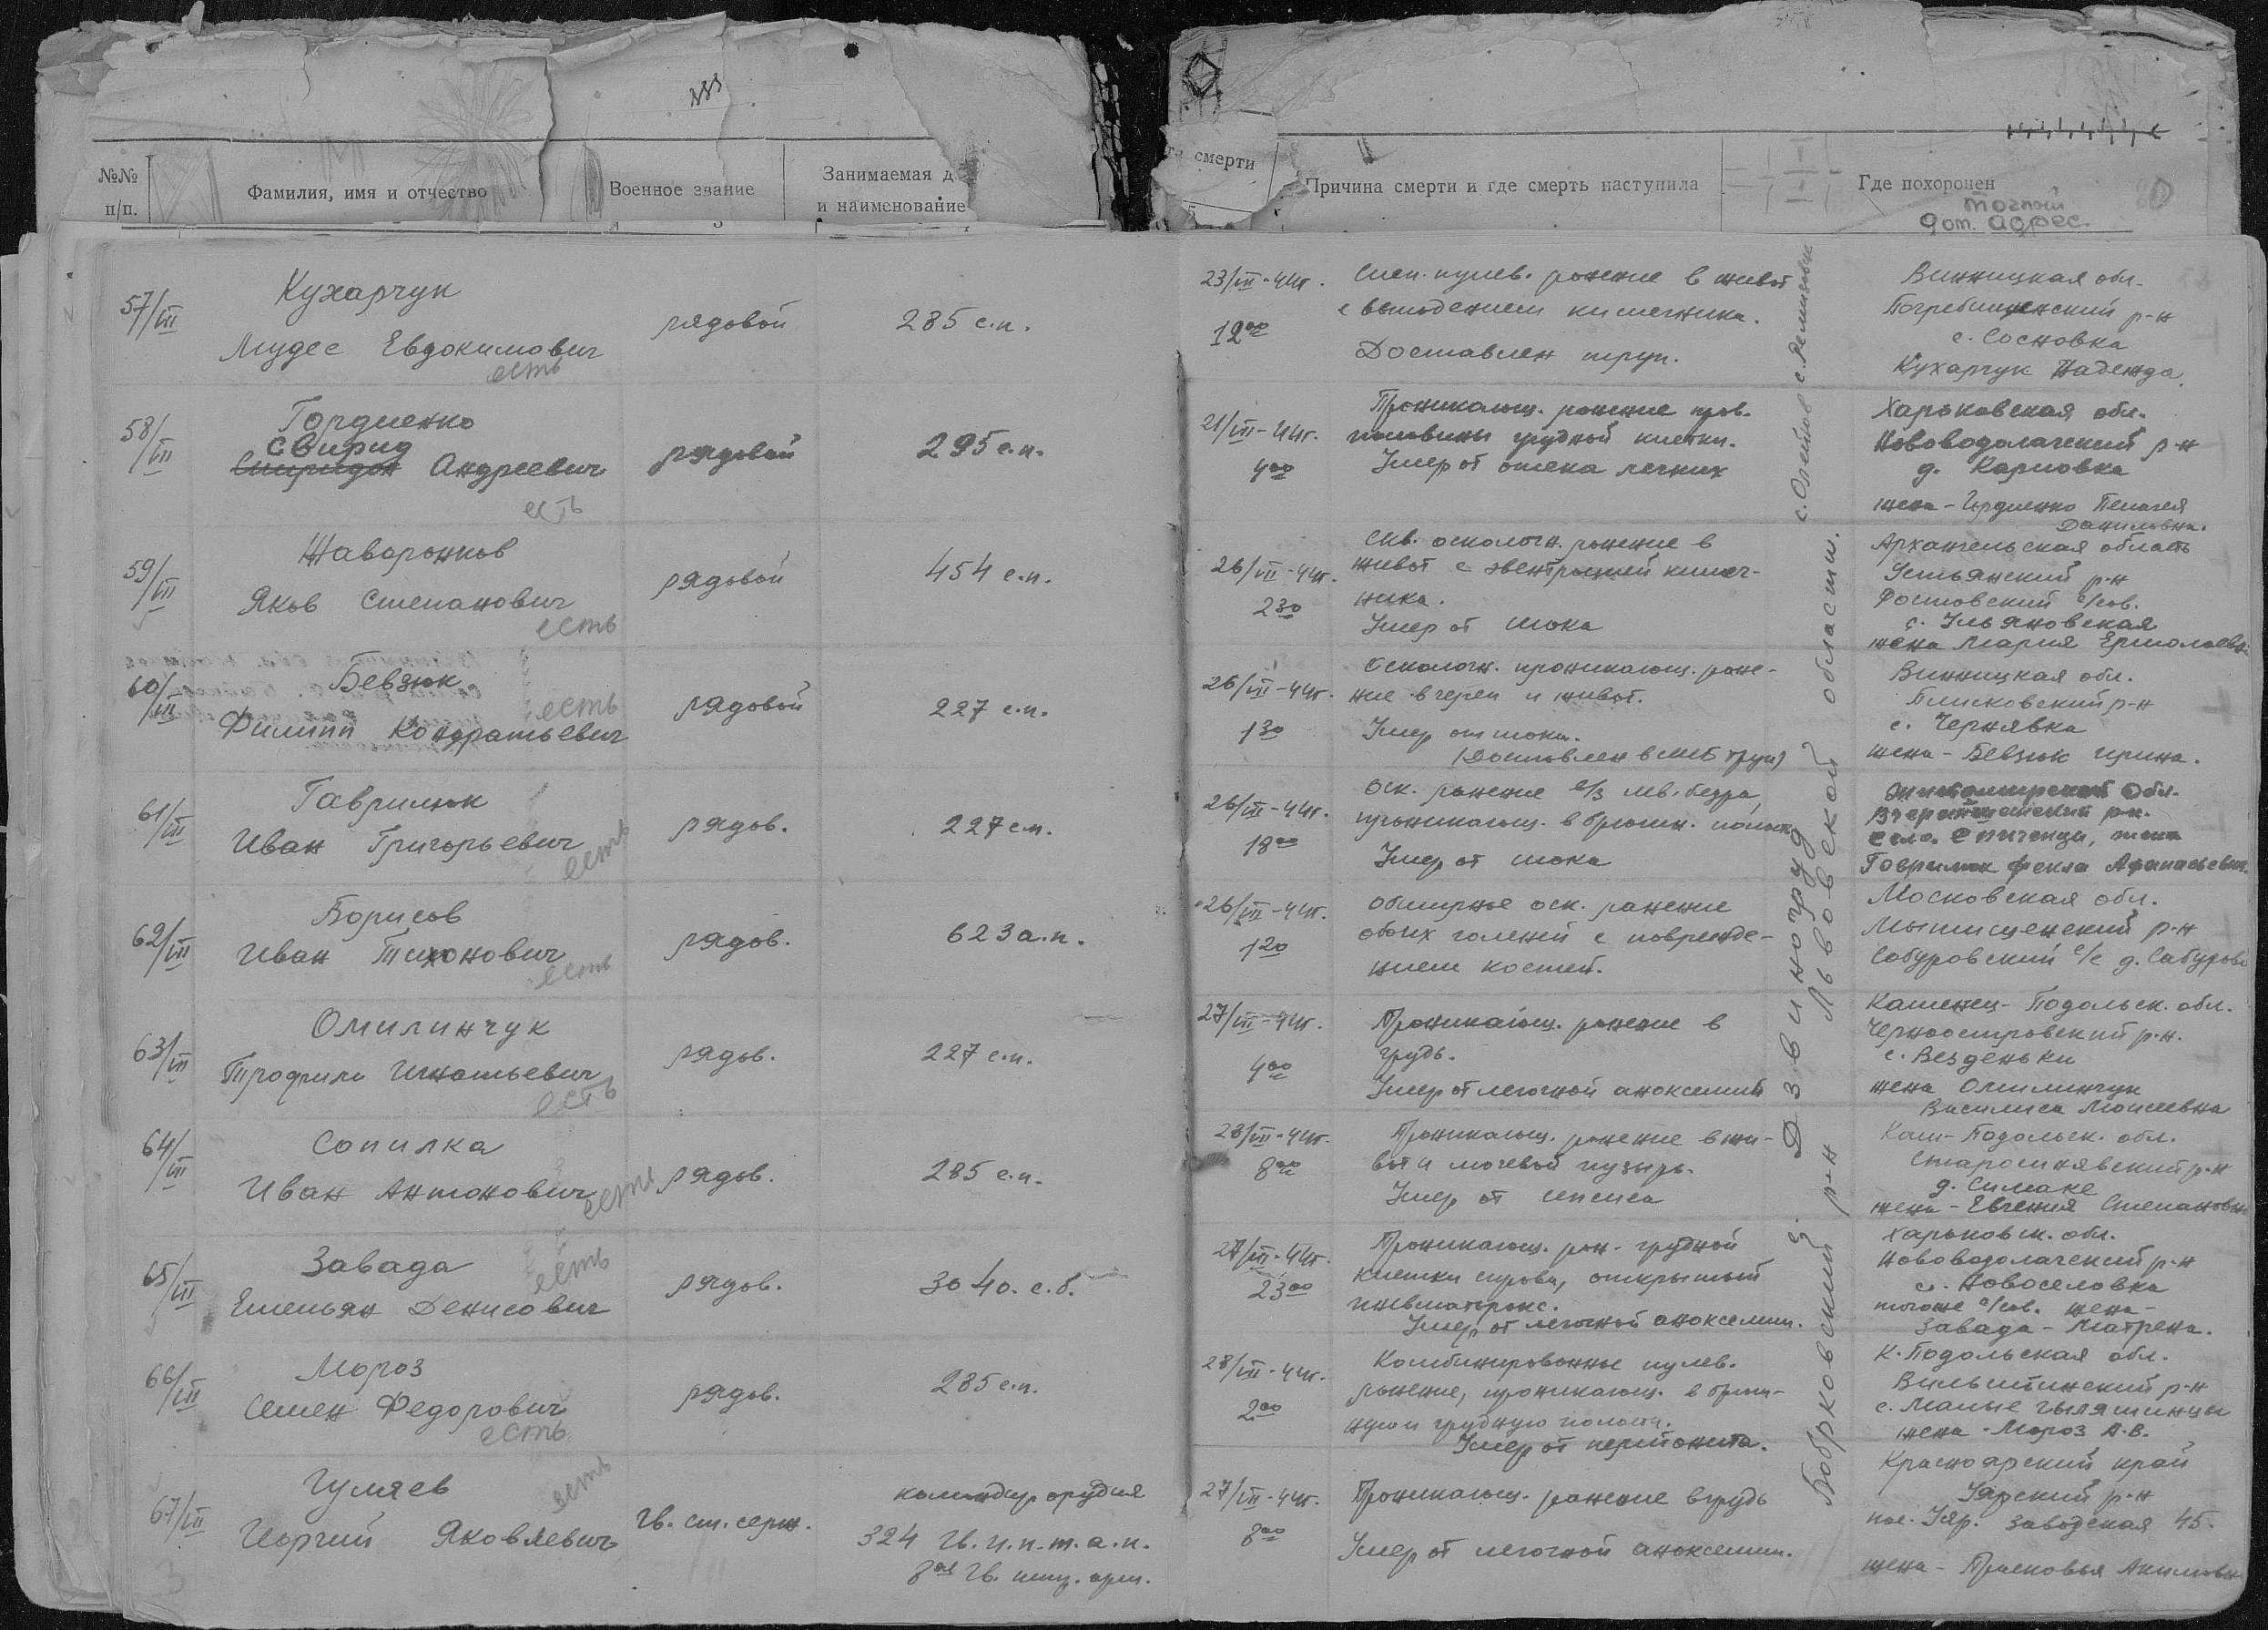 №№
п/п.
Фамилия, имя и отчество
Военное звание
Занимаемая д
и наименование
смерти
Причина смерти и где смерть наступила
Где похоронен
точный
дом. адрес.
57/VII
Кухарчук
Мудес Евдокимович
есть
рядовой
285 с.п.
23/VII-44г.
12 00
Слеп. пулев. ранение в живот
с выпадением кишечника.
Доставлен труп.
Винницкая обл.
Погребищенский р-н
с. Сосновка
Кухарчук Надежда
58/VII
Гордиенко
Свирид
Спиридон Андреевич
есть
рядовой
295 с.п.
21/VII-44г.
4 00
Проникающ. ранение прав.
половины грудной клетки.
Умер от отека легких
Харьковская обл.
Нововодолачский р-н
д. Карловка
жена - Гордиенко Пелагея
Даниловна.
59/VII
Жаворонков
Яков Степанович
есть
рядовой
454 с.п.
26/VII-44г.
2 30
Скв. осколочн. ранение в
живот с эвентрацией кишеч-
ника.
Умер от шока
Архангельская область
Устьянский р-н
Ростовский с/сов.
с. Ульяновская
жена Мария Ермолаевн.
60/VII
Бевзюк
Филипп Кондратьевич
есть
рядовой
227 с.п.
26/VII-44г.
1 30
Осколочн. проникающ. ране-
ние в череп и живот.
Умер от шока.
(Доставлен в МСБ труп)
Винницкая обл.
Плисковский р-н
с. Чернявка
жена - Бевзюк Ирина.
61/VII
Гаврилюк
Иван Григорьевич
есть
рядов.
227 с.п.
26/VII-44г.
18 00
Оск. ранение в/з лев. бедра,
проникающ. в брюшн. полость
Умер от шока
Житомирской обл.
Вчерайшенский рн.
село. Спиченци, жена
Гаврилюк Фекла Афанасьевн.
62/VII
Борисов
Иван Тихонович
есть
рядов.
623 а.п.
26/VII-44г.
1 20
Обширное оск. ранение
обоих голеней с поврежде-
нием костей.
Московская обл.
Мытищенский р-н
Сабуровский с/с д. Сабурово
63/VII
Омилинчук
Трофим Игнатьевич
есть
рядов.
227 с.п.
27/VII-44г.
4 00
Проникающ. ранение в
грудь.
Умер от легочной аноксемии
Каменец-Подольск. обл.
Черноостровский р.н.
с. Везденьки
жена Омилинчук
Василиса Моисеевна
64/VII
Сопилка
Иван Антонович
есть
рядов.
285 с.п.
28/VII-44г.
8 00
Проникающ. ранение в жи-
вот и мочевой пузырь.
Умер от сепсиса
Кам-Подольск. обл.
Старосинявский р-н
д. Симаке
жена - Евгения Степановна
65/VII
Завада
Емельян Денисович
есть
рядов.
304 о. с. б.
27/VII-44г.
23 00
Проникающ. ран. грудной
клетки справа, открытый
пневматоракс.
Умер от легочной аноксемии.
Харьковск. обл.
Нововодолачский р-н
с. Новоселовка
тогоже с/сов. жена-
Завада - Матрена.
66/VII
Мороз
Семен Федорович
есть
рядов.
285 с.п.
28/VII-44г.
2 00
Комбинированное пулев.
ранение, проникающ. в брюш-
ную и грудную полости.
Умер от перитонита.
К. Подольская обл.
Вильшинский р-н
с. Малые
жена - Мороз А.В.
67/VII
Гуляев
Георгий Яковлевич
есть
Гв. ст. серж.
командир орудия
324 Гв. и.п.т.а.п.
8ая Гв. арт.
27/VII-44г.
8 00
Проникающ. ранение в грудь
Умер от легочной аноксемии.
Красноярский край
Уярский р-н
пос. Уяр. Заводская 45.
жена - Прасковья Акимовн
с. Дзвиногруд с. Олейнов с. Ремизовцы
Бобрковский р-н Львовской области.